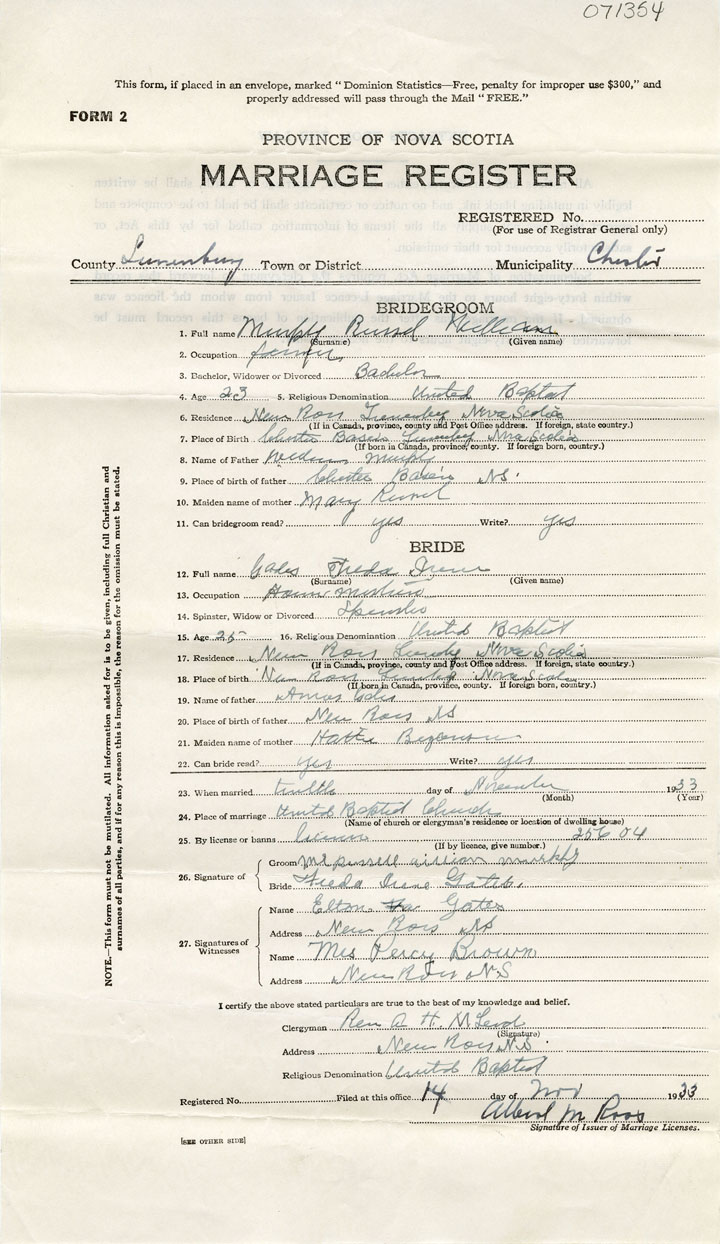 071354
This form, if placed in an envelope, marked "Dominion Statistics—Free, penalty for improper use $300," and
properly addressed will pass through the Mail "FREE."
FORM 2
PROVINCE OF NOVA SCOTIA
MARRIAGE REGISTER
REGISTERED No.
(For use of Registrar General only)
County Lunenburg Town or District Municipality Chester
BRIDEGROOM
1. Full name Murphy Russel William
(Surname) (Given name)
2. Occupation farmer
3. Bachelor, Widower or Divorced Bachelor
4. Age 23 5. Religious Denomination United Baptist
6. Residence New Ross Lunenburg Nova Scotia
(If in Canada, province, county and Post Office address. If foreign, state country.)
7. Place of Birth Chester Basin Lunenburg Nova Scotia
(If born in Canada, province, county. If foreign born, country.)
8. Name of Father Murphy
9. Place of birth of father Chester Basin NS.
10. Maiden name of mother Mary
11. Can bridegroom read? yes Write? yes
BRIDE
12. Full name Gates Freda Irene
(Surname) (Given name)
13. Occupation
14. Spinster, Widow or Divorced Spinster
15. Age 25 16. Religious Denomination United Baptist
17. Residence New Ross Nova Scotia
(If in Canada, province, county and Post Office address. If foreign, state country.)
18. Place of birth New Ross Nova Scotia
(If born in Canada, province, county. If foreign born, country.)
19. Name of father Amos Gates
20. Place of birth of father New Ross NS
21. Maiden name of mother Hattie
22. Can bride read? yes Write? yes
23. When married twelth day of November 1933
(Month) (Year)
24. Place of marriage United Baptist Church
(Name of church or clergyman's residence or location of dwelling house)
25. By license or banns license 25604
(If by licence, give number.)
26. Signature of
Groom Mr russell william murphy
Bride Freda Irene Gates.
27. Signatures of Witnesses
Name Elton Gates
Address New Ross NS
Name Mrs Percy Brown
Address New Ross N.S
I certify the above stated particulars are true to the best of my knowledge and belief.
Clergyman Rev H. McLeod
(Signature)
Address New Ross N.S.
Religious Denomination United Baptist
Registered No. Filed at this office 14 day of Nov 1933
Albert M Ross
Signature of Issuer of Marriage Licenses.
[SEE OTHER SIDE]
NOTE.—This form must not be mutilated. All information asked for is to be given, including full Christian and
surnames of all parties, and if for any reason this is impossible, the reason for the omission must be stated.